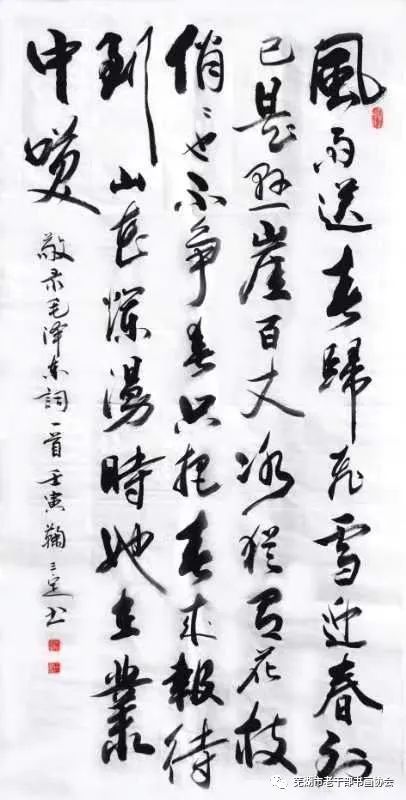 風雨送春歸飛雪迎春到
已是懸崖百丈冰猶有花枝
俏〻也不争春只把春来報待
到山花爛漫時她在叢
中咲
敬录毛泽东詞一首壬寅鞠三定书
芜湖市老干部书画协会